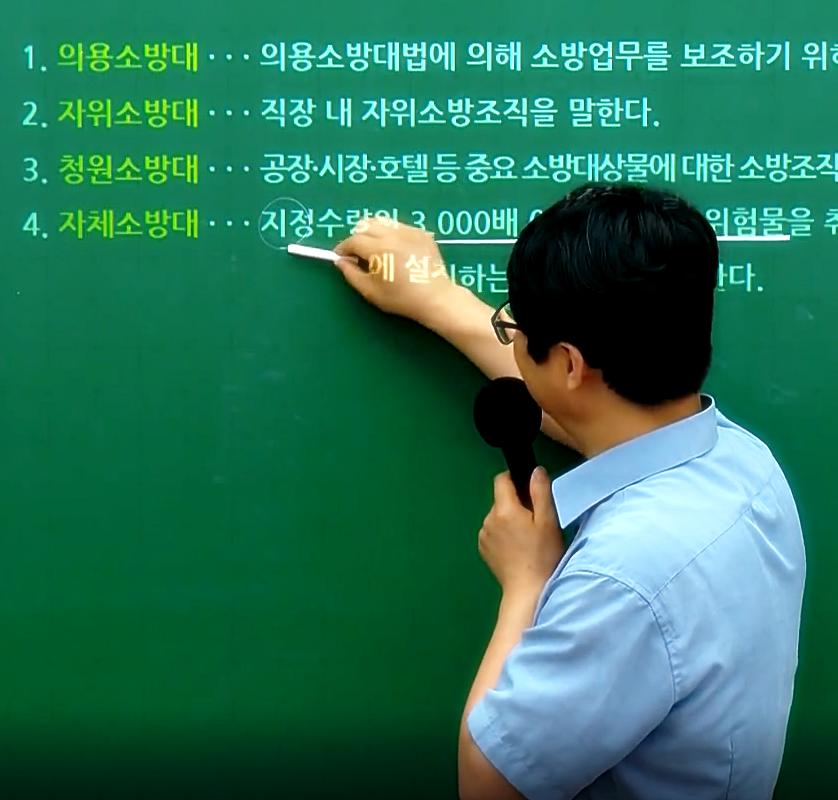 1. 의용소방대 ··· 의용소방대법에 의해 소방업무를 보조하기
2. 자위소방대 ··· 직장 내 자위소방조직을 말한다.
3. 청원소방대 ··· 공장·시장·호텔 등 중요 소방대상물에 대한 소방조직
4. 자체소방대 ··· 지정수량의 3,000배 위험물을
에 설치하는